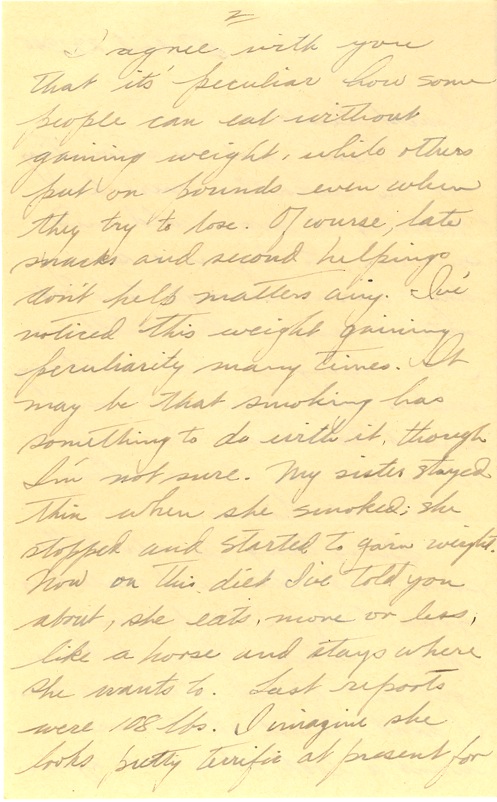 2
I agree with you
that it's peculiar how some
people can eat without
gaining weight, while others
put on pounds even when
they try to lose. Of course, late
snacks and second helpings
don't help matters any. I've
noticed this weight gaining
peculiarity many times. It
may be that smoking has
something to do with it, though
I'm not sure. My sister stayed
thin when she smoked; she
stopped and started to gain weight.
Now on this diet I've told you
about, she eats, more or less,
like a horse and stays where
she wants to. Last reports
were 108 lbs. I imagine she
looks pretty terrific at present for